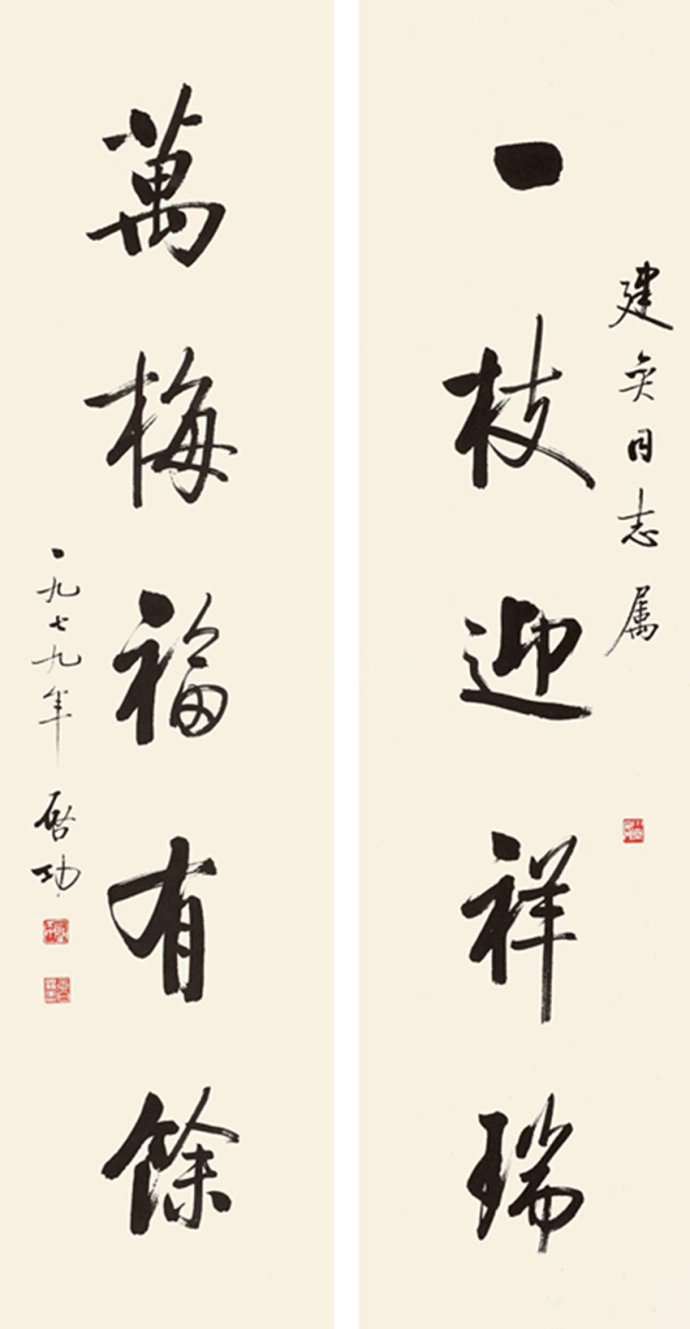 建奕同志属
一枝迎祥瑞
萬梅福有餘
一九七九年 啓功